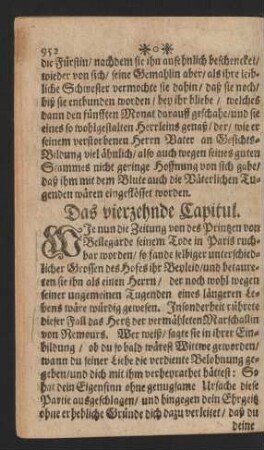 952 ❀o❀
die Fürstin / nachdem sie ihn ansehnlich beschencket /
wieder von sich / seine Gemahlin aber / als ihre leib-
liche Schwester vermochte sie dahin / daß sie noch /
biß sie entbunden worden / bey ihr bliebe / welches
dann den fünfften Monat darauff geschahe / und sie
eines so wohlgestalten Herrleins genaß / der / wie er
seinem verstorbenen Herrn Vater an Gesichts-
Bildung viel ähnlich / also auch wegen seines guten
Stammes nicht geringe Hoffnung von sich gabe /
daß ihm mit dem Blute auch die Väterlichen Tu-
genden wären eingeflösset worden.
Das vierzehnde Capitul.
WJe nun die Zeitung von des Printzen von
Bellegarde seinem Tode in Paris ruch-
bar worden / so fande selbiger unterschied-
licher Grossen des Hofes ihr Beyleid / und betaure-
ten sie ihn als einen Herrn / der noch wohl wegen
seiner ungemeinen Tugenden eines längeren Le-
bens wäre würdig gewesen. Jnsonderheit rührete
dieser Fall das Hertz der vermähleten Marschallin
von Nemours. Wer weiß / sagte sie in ihrer Ein-
bildung / ob du so bald wärest Wittwe geworden /
wann du seiner Liebe die verdiente Belohnung ge-
geben / und dich mit ihm verheyrathet hättest: So
hat dein Eigensinn ohne genugsame Ursache diese
Partie ausgeschlagen / und hingegen dein Ehrgeitz
ohne erhebliche Gründe dich dazu verleitet / daß du
deine